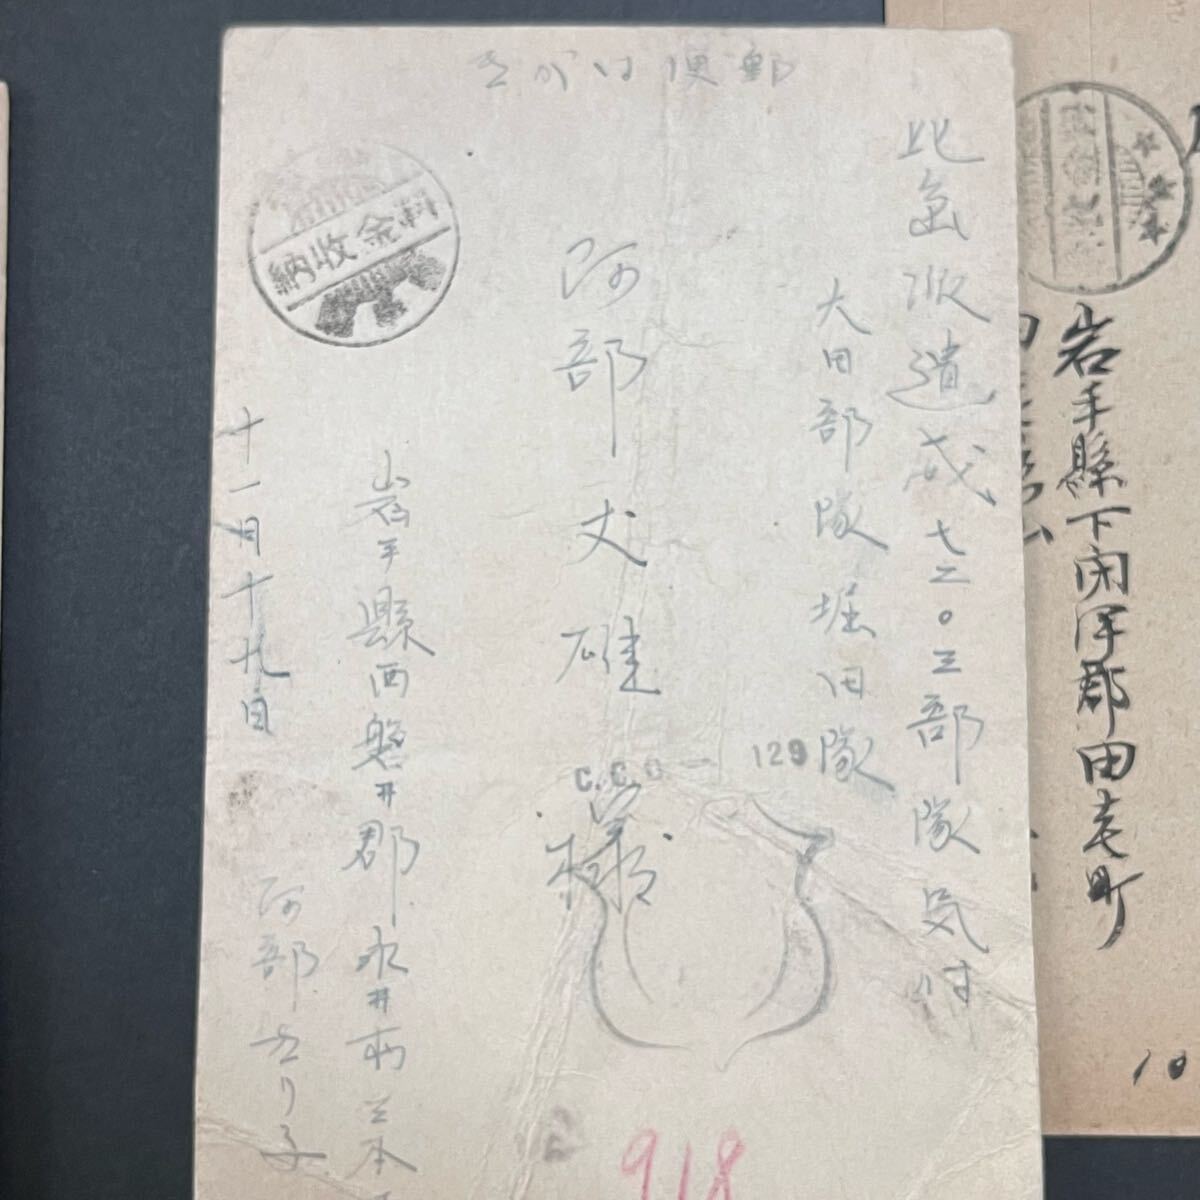 郵便はがき
比島派遣威七二〇三部隊気付
大田部隊堀田隊
阿部丈雄
様
C.C.D.- 129
料金収納
岩手縣西磐井郡永井村
阿部
十一月十九日
918
岩手縣下閉伊郡田老町
10